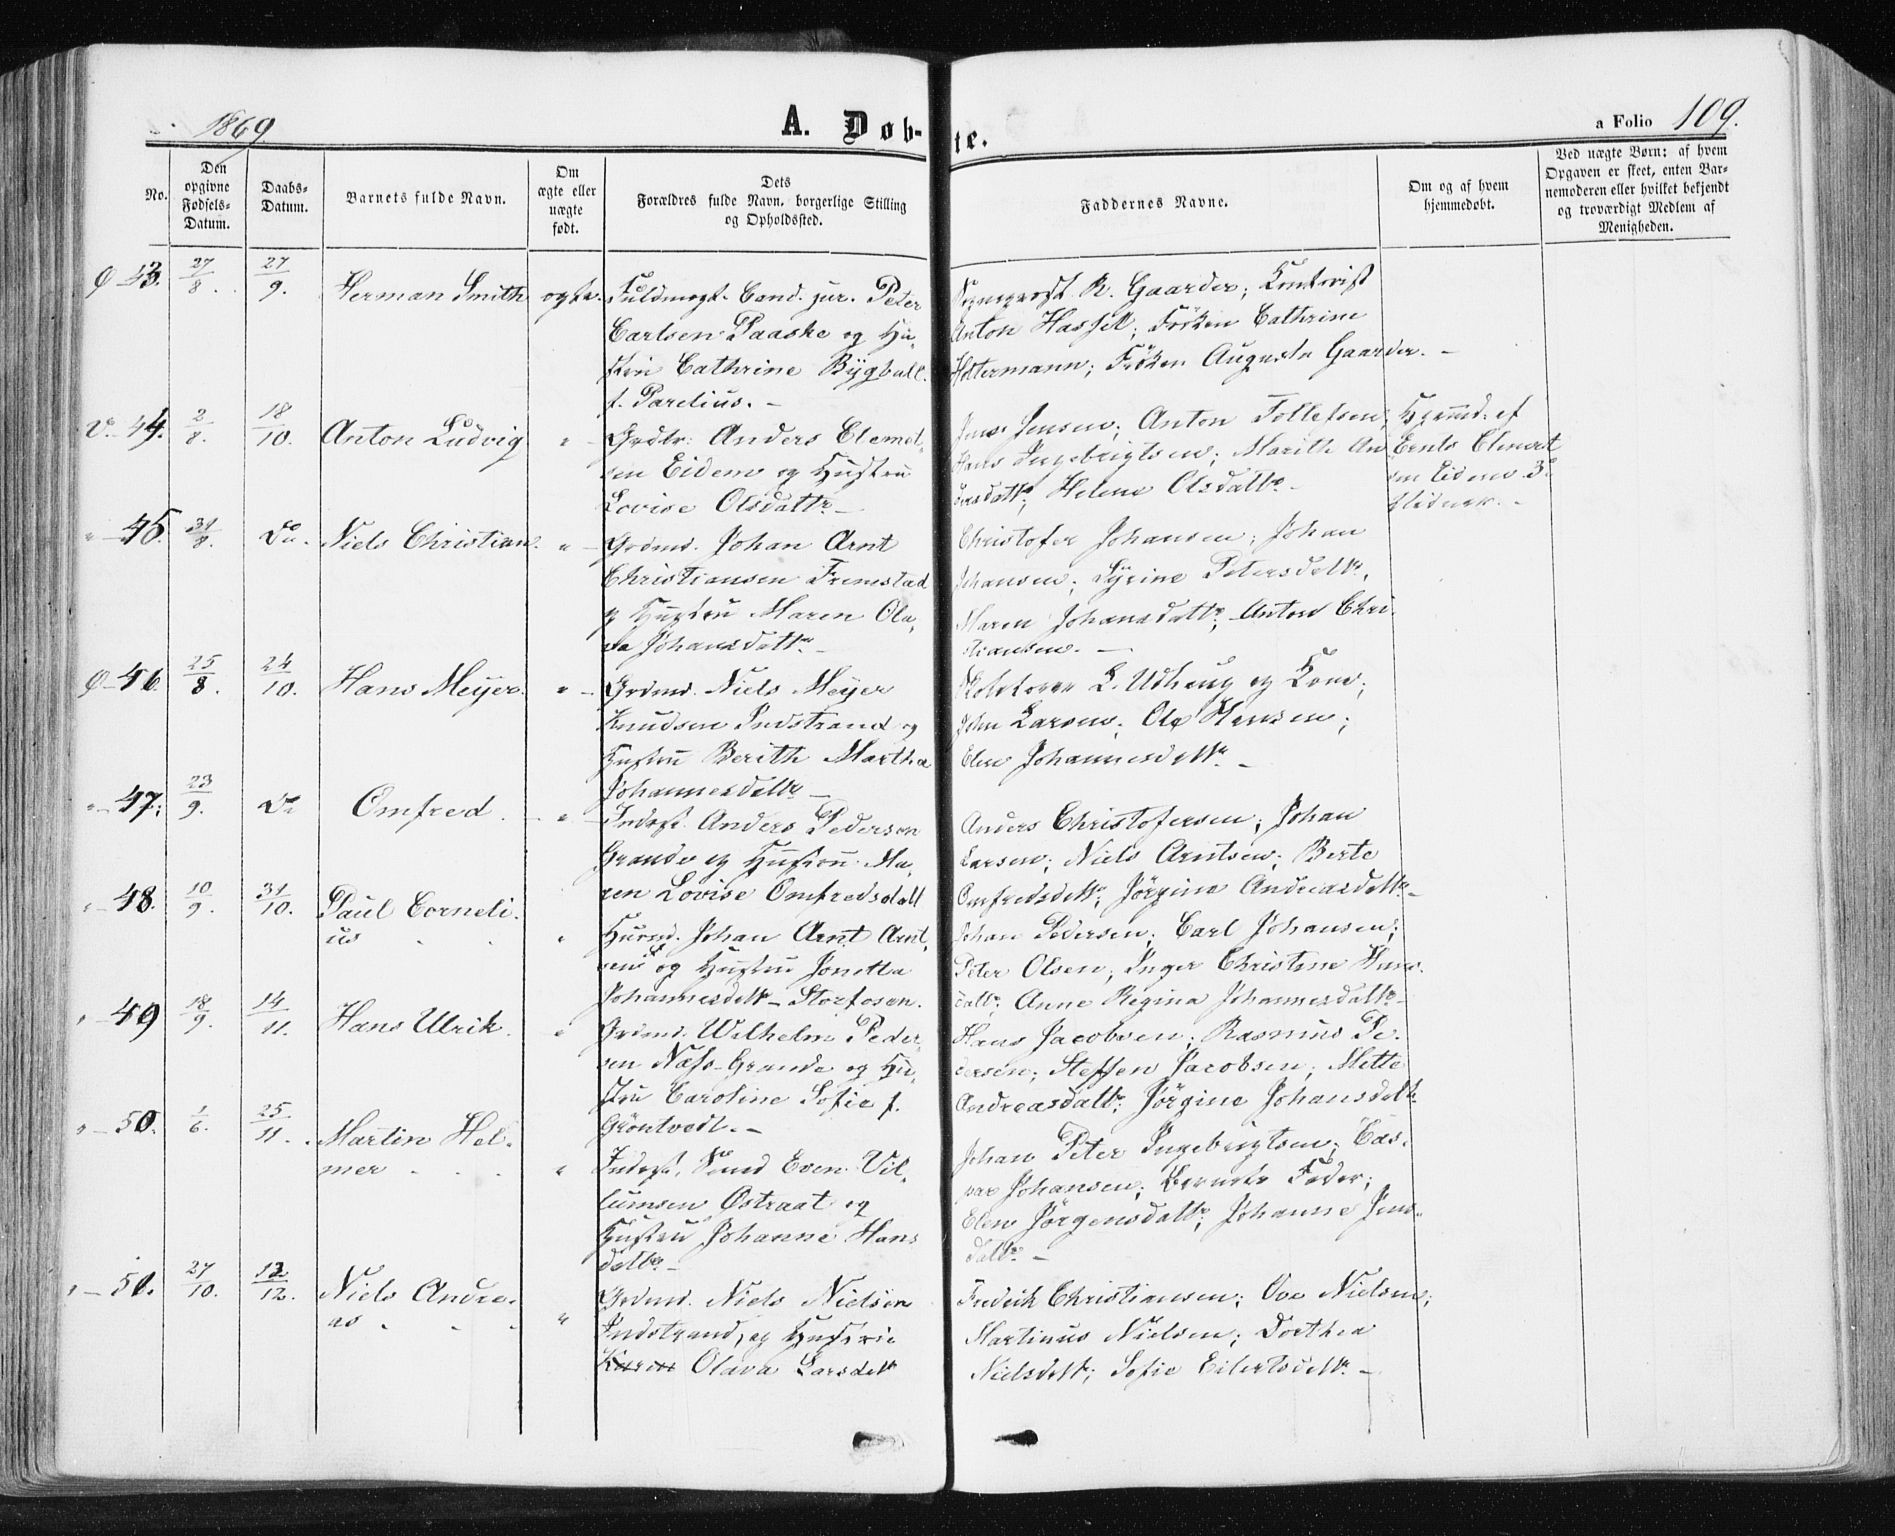 1869
A. Døb-te.
a Folio 109.
No.
Den opgivne Fødsels-Datum.
Daabs-Datum.
Barnets fulde Navn.
Om ægte eller uægte født.
Dets Forældres fulde Navn, borgerlige Stilling og Opholdssted.
Faddernes Navne.
Om og af hvem hjemmedøbt.
Ved uægte Børn: af hvem Opgaven er skeet, enten Barnemoderen eller hvilket bekjendt og troværdigt Medlem af Menigheden.
Ø–43. 27/8. 27/9. Herman Smith ægte.
Fuldmægt. Cand. jur. Peter
Carlsen Paaske og Hu-
stru Cathrine Bygball
f. Parelius. –
Sogneprest R. Gaarder; Kontorist
Anton Hassel; Frøken Cathrine
Holtermann; Frøken Augusta Gaarder. –
V.–44. 2/8. 18/10. Anton Ludvig "
Grdbr: Anders Clemet-
sen Eidem og Hustru
Lovise Olsdattr –
Jens Jensen; Anton Tollefsen;
Hans Ingebrigtsen; Marith An
dersdattr; Helene Olsdattr –
Hjemmd. af
Ernts Clemet
sen Eidem
"–45. 31/8. Do. Niels Christian. "
Grdmd. Johan Arnt
Christiansen Fremstad
og Hustru Maren Ola-
va Johansdattr –
Christofer Johansen; Johan
Johansen; Syrine Petersdattr,
Maren Johansdattr; Anton Chri-
stiansen. –
Ø–46. 25/8. 24/10. Hans Meyer. "
Grdmd. Niels Meyer
Knudsen Indstrand og
Hustru Berith Martha
Johannesdattr –
Skolelærer L. Udhaug og Kone;
John Larsen; Ole Hansen;
Elen Johannesdattr –
"–47. 23/9. Do Omfred. "
Inderst Anders Pedersen
Grande og Hustru Ma-
ren Lovise Omfredsdatt
Anders Christofersen; Johan
Larsen; Niels Arntsen; Berte
Omfredsdattr; Jörgine Andreasdattr –
"–48. 10/9. 31/10. Paul Corneli-
us "
Huusmd. Johan Arnt Arnt-
sen og Hustru Jonetta
Johannesdattr – Storfosen.
Johan Pedersen; Carl Johansen;
Peter Olsen; Inger Christine Hans-
dattr; Anne Regina Johannesdattr –
"–49 18/9. 14/11. Hans Ulrik. "
Grdmd. Wilhelm Peder-
sen Næss-Grande og Hu-
stru Caroline Sofie f.
Gröntvedt. –
Hans Jacobsen; Rasmus Pe-
dersen; Steffen Jacobsen; Mette
Andreasdattr; Jörgine Johansdattr
"–50. 1/6. 25/11. Martin Hel-
mer "
Inderst, Smed Even Vil-
lumsen Østraat og
Hustru Johanne Hans
dattr –
Johan Peter Ingebrigtsen; Cas-
par Johansen; Bernets Feder;
Elen Jörgensdattr; Johanne Jens-
dattr –
"–51. 27/10. 12/12. Niels Andre-
as "
Grdmd. Niels Nielsen
Indstrand, og Hustru
Karen Olava Larsdatt
Fredrik Christiansen; Ove Nielsen;
Martinus Nielsen; Dorthea
Nielsdattr; Sofie Eilertsdattr –